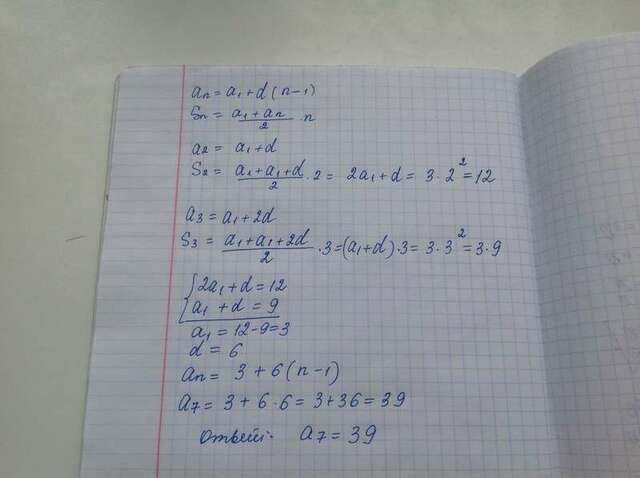 an = a1 + d (n-1)
Sn = (a1 + an)/2 · n
a2 = a1 + d
S2 = (a1 + a1 + d)/2 · 2 = 2a1 + d = 3 · 2² = 12
a3 = a1 + 2d
S3 = (a1 + a1 + 2d)/2 · 3 = (a1 + d) · 3 = 3 · 3² = 3 · 9
{ 2a1 + d = 12
a1 + d = 9
a1 = 12 - 9 = 3
d = 6
an = 3 + 6 (n-1)
a7 = 3 + 6 · 6 = 3 + 36 = 39
Ответ: a7 = 39